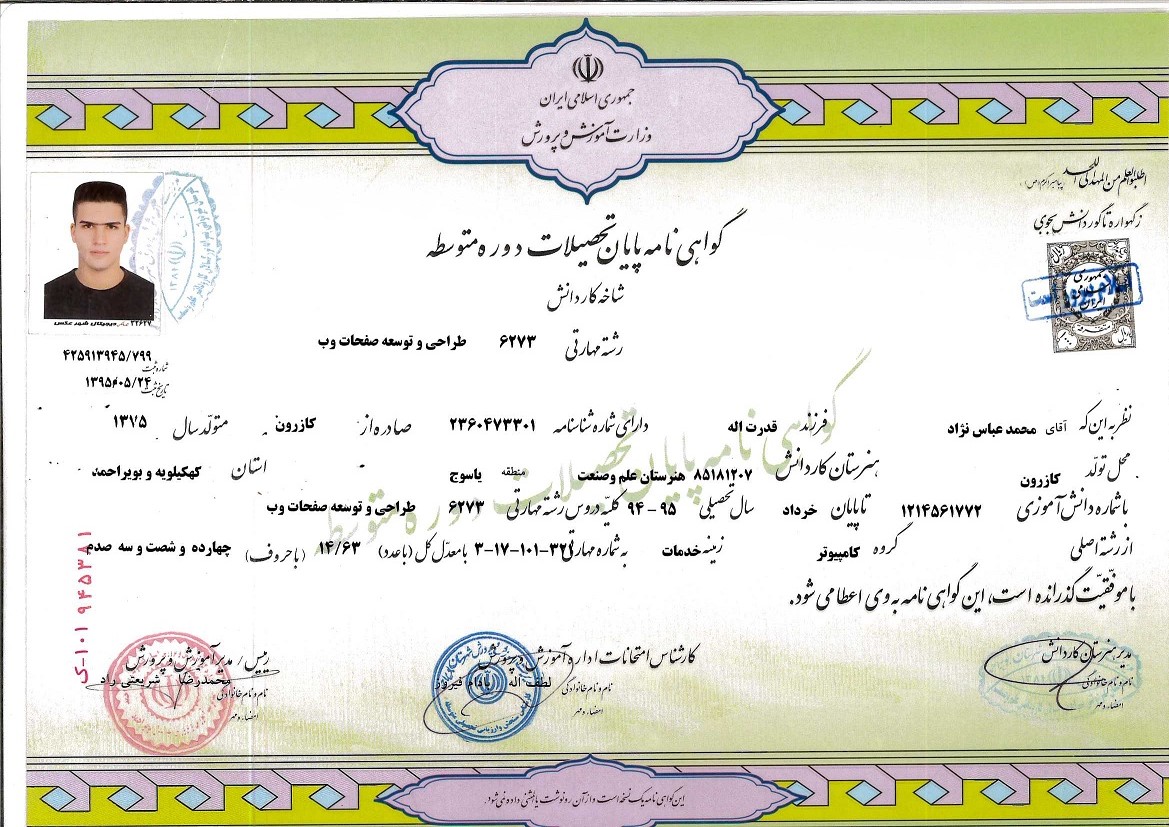 جمهوری اسلامی ایران
وزارت آموزش و پرورش
اطلبوا العلم من المهد الی اللحد
پیامبر اکرم (ص)
ز گهواره تا گور دانش بجوی
گواهی نامه پایان تحصیلات دوره متوسطه
شاخه کاردانش
رشته مهارتی ۶۲۷۳ طراحی و توسعه صفحات وب
۲۲۶۲۷ دیجیتال شهر عکس
شماره ثبت ۴۲۵۹۱۳۹۴۵/۷۹۹
تاریخ ثبت ۱۳۹۵/۰۵/۲۴
نظر به این که آقای محمد عباس نژاد فرزند قدرت اله دارای شماره شناسنامه ۲۳۶۰۴۷۳۳۰۱ صادره از کازرون متولد سال ۱۳۷۵
محل تولد کازرون هنرستان کاردانش ۸۵۱۸۱۲۰۷ هنرستان علم وصنعت منطقه یاسوج استان کهکیلویه و بویراحمد
با شماره دانش آموزی ۱۲۱۴۵۶۱۷۷۲ تا پایان خرداد سال تحصیلی ۹۵ - ۹۴ کلیه دروس رشته مهارتی ۶۲۷۳ طراحی و توسعه صفحات وب
از رشته اصلی گروه کامپیوتر زمینه خدمات به شماره مهارتی ۳-۱۷-۱۰۱-۳۲۱ با معدل کل (با عدد) ۱۴/۶۳ (با حروف) چهارده و شصت و سه صدم
با موفقیت گذرانده است، این گواهی نامه به وی اعطا می شود.
ک-۱۰۱ ۹۴۵۳۸۱
مدیر هنرستان کاردانش
نام و نام خانوادگی
امضاء و مهر
کارشناس امتحانات اداره آموزش و پرورش
لطف اله بادام فیروز
نام و نام خانوادگی
امضاء و مهر
رئیس / مدیر آموزش و پرورش
محمدرضا شریعتی راد
نام و نام خانوادگی
امضاء و مهر
این گواهی نامه یک نسخه است و از آن رونوشت یا المثنی داده نمی شود.